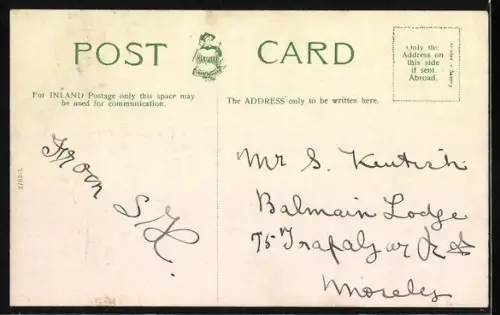 POST CARD
Only the
Address on
this side
if sent
Abroad.
For INLAND Postage only this space may
be used for communication.
The ADDRESS only to be written here.
From S.H.
Mr S. Kentish
Balmain Lodge
75 Trafalgar Rd
Moseley